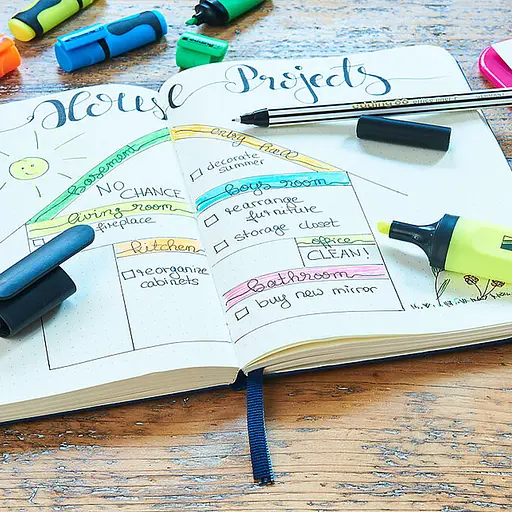 House Projects
basement
NO CHANCE
living room
fireplace
kitchen
reorganize
cabinets
entry hall
decorate
summer
boys room
rearrange
furniture
storage closet
office
CLEAN!
bathroom
buy new mirror